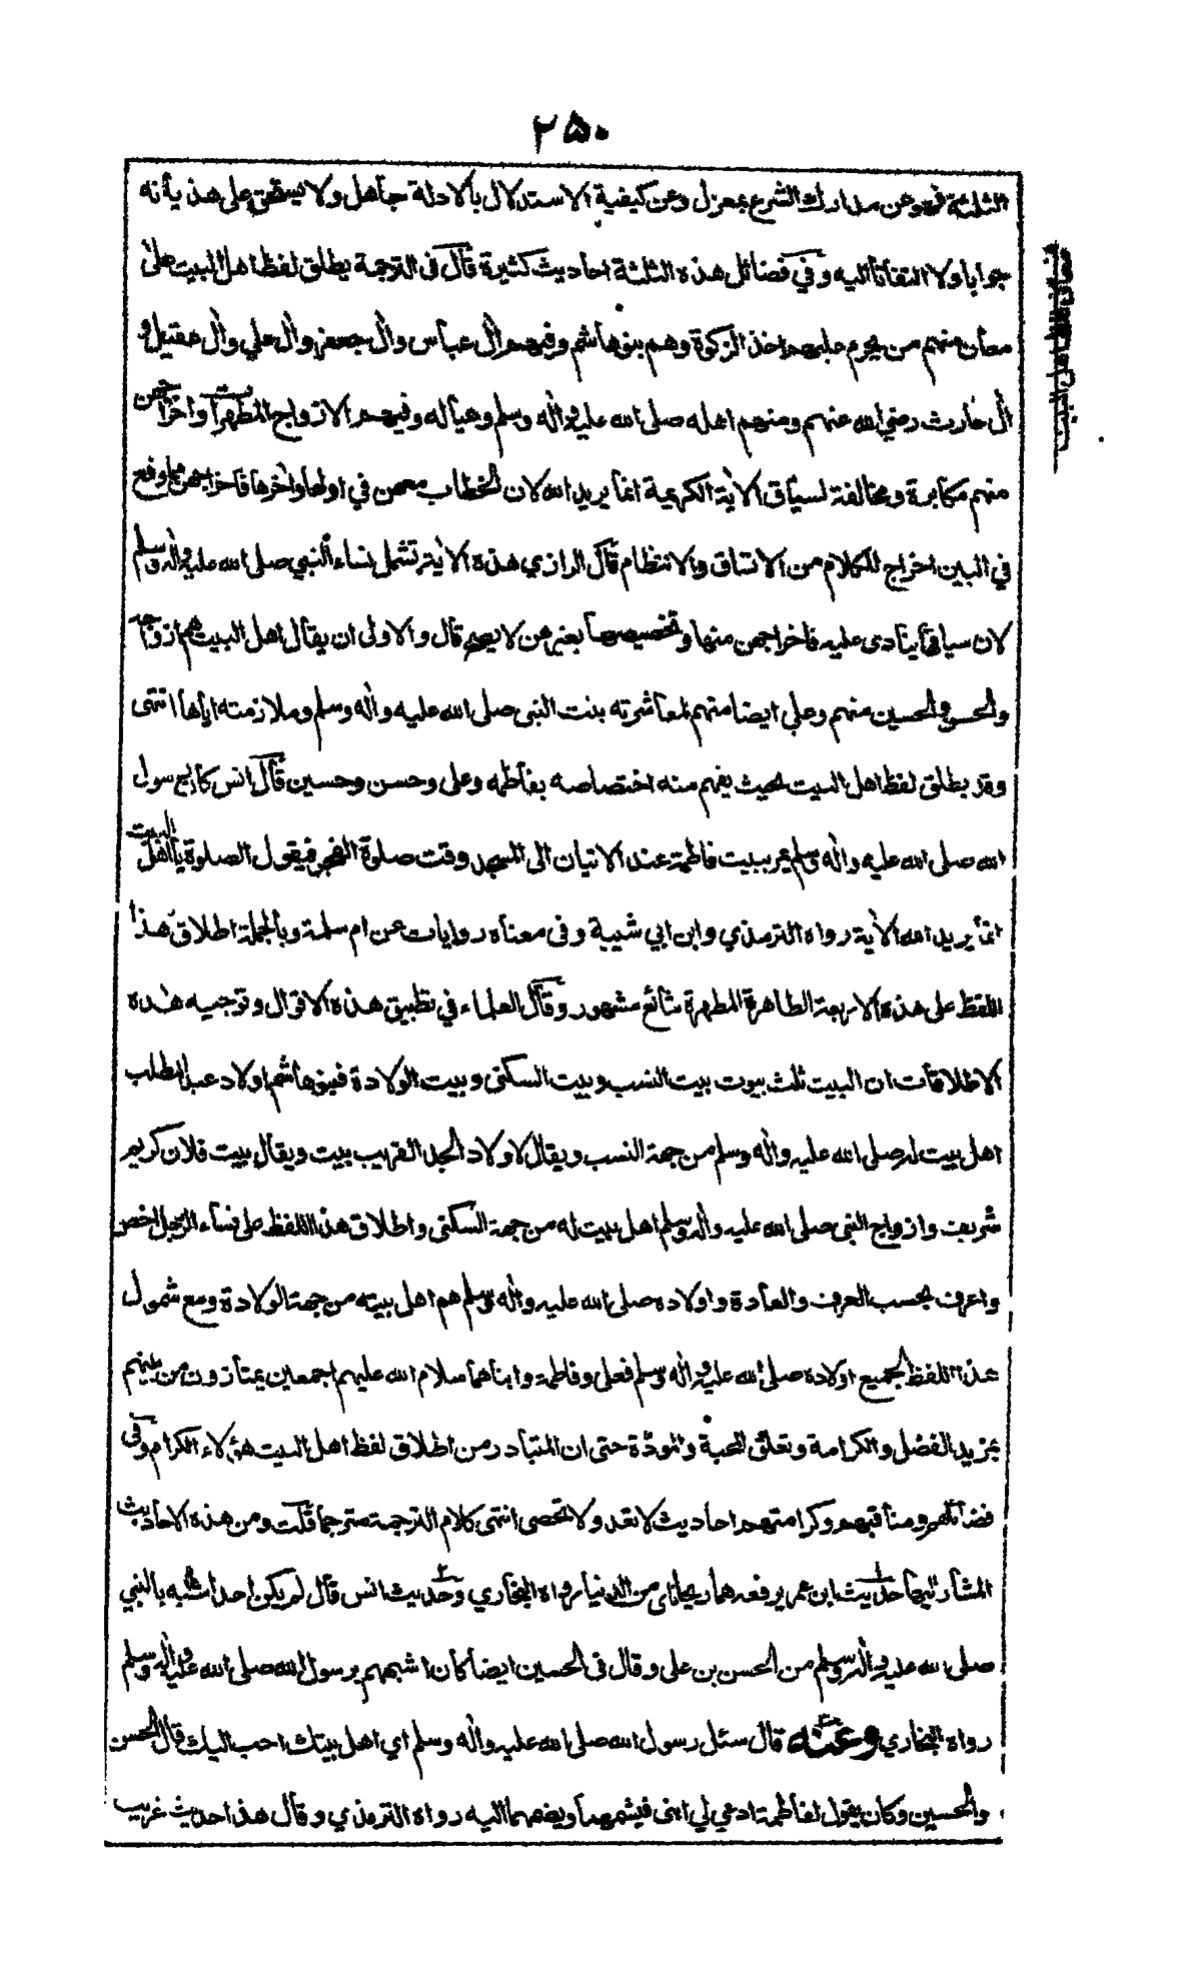 ٢٥٠
الثلثة فهو عن مدارك الشرع بمعزل وعن كيفية الاستدلال بالادلة جاهل ولا يستحق على هذيانه
جوابا ولا التفاتا اليه وفي فضائل هذه الثلثة احاديث كثيرة قال فى الترجمة يطلق لفظ اهل البيت على
معان منهم من يحرم عليهم اخذ الزكوة وهم بنو هاشم وفيهم اٰل عباس واٰل جعفر واٰل علي واٰل عقيل و
اٰل حارث رضي الله عنهم ومنهم اهله صلى الله عليه واٰله وسلم وعياله وفيهم الازواج المطهرات واخراجهن
منهم مكابرة ومخالفة لسياق الاٰية الكريمة انما يريد الله لان الخطاب معهن في اولها واٰخرها فاخراجهن مما وقع
في البين اخراج للكلام من الاتساق والانتظام قال الرازي هذه الاٰية تشمل نساء النبي صلى الله عليه واٰله وسلم
لان سياقها ينادى عليه فاخراجهن منها وتخصيصها بغيرهن لا يصح قال والاولى ان يقال اهل البيت هم ازواجه
والحسن والحسين منهم وعلي ايضا منهم لمعاشرته بنت النبى صلى الله عليه واٰله وسلم وملازمته اياها انتهى
وقد يطلق لفظ اهل البيت بحيث يفهم منه اختصاصه بفاطمة وعلى وحسن وحسين قال انس كان رسول
الله صلى الله عليه واٰله وسلم يمر ببيت فاطمة عند الاتيان الى المسجد وقت صلوة الفجر فيقول الصلوة يا اهل البيت
انما يريد الله الاٰية رواه الترمذي وابن ابي شيبة وفى معناه روايات عن ام سلمة وبالجملة اطلاق هذا
اللفظ على هذه الاربعة الطاهرة المطهرة شائع مشهور وقال العلماء في تطبيق هذه الاقوال وتوجيه هذه
الاطلاقات ان البيت ثلث بيوت بيت النسب وبيت السكنى وبيت الولادة فبنو هاشم اولاد عبد المطلب
اهل بيت له صلى الله عليه واٰله وسلم من جهة النسب ويقال لاولاد الجد القريب بيت ويقال بيت فلان كريم
شريف وازواج النبى صلى الله عليه واٰله وسلم اهل بيت له من جهة السكنى واطلاق هذا اللفظ على نساء الرجل اخص
واعرف بحسب العرف والعادة واولاده صلى الله عليه واٰله وسلم هم اهل بيته من جهة الولادة ومع شمول
هذا اللفظ لجميع اولاده صلى الله عليه واٰله وسلم فعلى وفاطمة وابناهما سلام الله عليهم اجمعين يمتازون من بينهم
بمزيد الفضل والكرامة وتعلق المحبة والمودة حتى ان المتبادر من اطلاق لفظ اهل البيت هؤلاء الكرام وفى
فضائلهم ومناقبهم وكرامتهم احاديث لا تعد ولا تحصى انتهى كلام الترجمة مترجما قلت ومن هذه الاحاديث
المشار اليها حديث ابن عمر يرفعه هما ريحاناى من الدنيا رواه البخاري وحديث انس قال لم يكن احد اشبه بالنبي
صلى الله عليه واٰله وسلم من الحسن بن على وقال فى الحسين ايضا كان اشبههم برسول الله صلى الله عليه واٰله وسلم
رواه البخاري وعنه قال سئل رسول الله صلى الله عليه واٰله وسلم اي اهل بيتك احب اليك قال الحسن
والحسين وكان يقول لفاطمة ادعي لي ابنى فيشمهما ويضمهما اليه رواه الترمذي وقال هذا حديث غريب